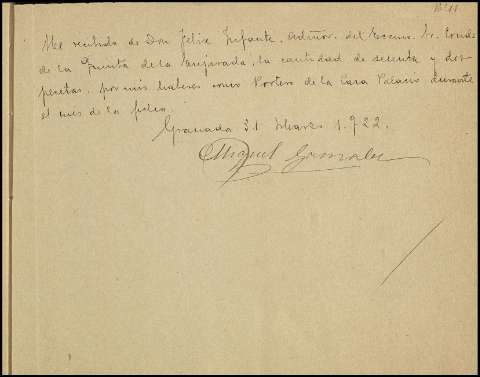 He recibido de Don Felix Infante, Admor. del Excmo. Sr. Conde
de la Quinta de la Enjarada, la cantidad de setenta y dos
pesetas, por mis haberes como Portero de la Casa Palacio durante
el mes de la fecha.
Granada 31 Marzo 1.922.
Miguel Gonzalez